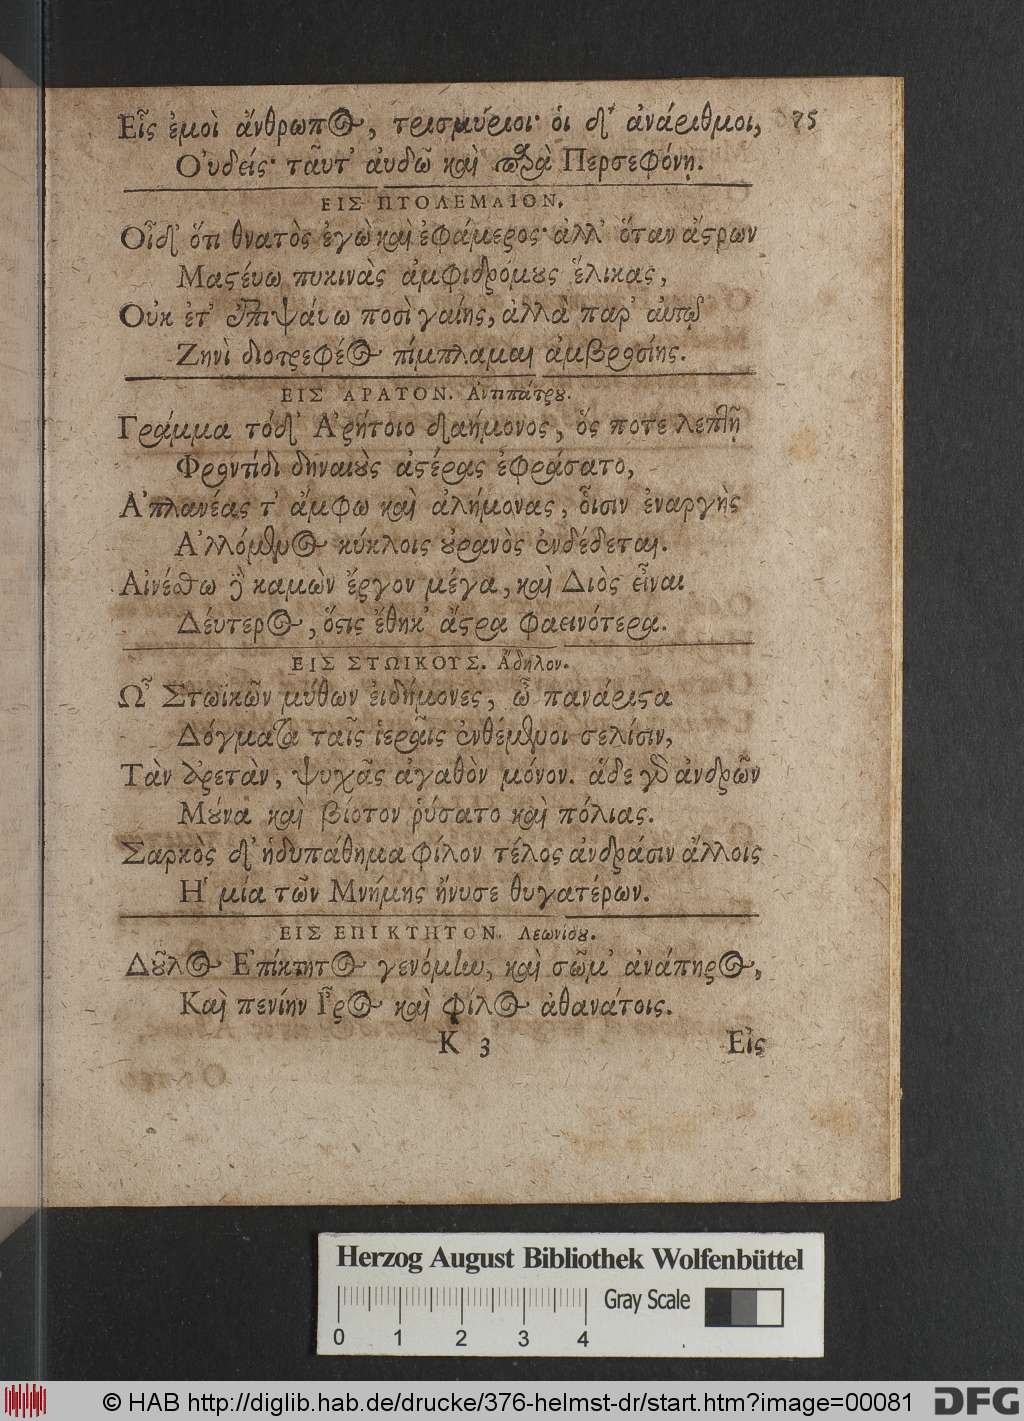 Εἷς ἐμοὶ ἄνθρωπος, τρισμύριοι· οἱ δ' ἀνάριθμοι, 75
Οὐδείς· ταῦτ' αὐδῶ καὶ παρὰ Περσεφόνῃ.
ΕΙΣ ΠΤΟΛΕΜΑΙΟΝ.
Οἶδ' ὅτι θνατὸς ἐγὼ καὶ ἐφάμερος· ἀλλ' ὅταν ἄστρων
Μαστεύω πυκινὰς ἀμφιδρόμους ἕλικας,
Οὐκ ἔτ' ἐπιψαύω ποσὶ γαίης, ἀλλὰ παρ' αὐτῷ
Ζηνὶ διοτρεφέος πίμπλαμαι ἀμβροσίης.
ΕΙΣ ΑΡΑΤΟΝ. Ἀντιπάτρου.
Γράμμα τόδ' Ἀρήτοιο δαήμονος, ὅς ποτε λεπτῇ
Φροντίδι δηναιοὺς ἀστέρας ἐφράσατο,
Ἀπλανέας τ' ἄμφω καὶ ἀλήμονας, οἷσιν ἐναργὴς
Ἀλλόμενος κύκλοις οὐρανὸς ἐνδέδεται.
Αἰνείσθω δὲ καμὼν ἔργον μέγα, καὶ Διὸς εἶναι
Δεύτερος, ὅστις ἔθηκ' ἄστρα φαεινότερα.
ΕΙΣ ΣΤΩΙΚΟΥΣ. Ἄδηλον.
Ὦ Στωϊκῶν μύθων εἰδήμονες, ὦ πανάριστα
Δόγματα ταῖς ἱεραῖς ἐνθέμενοι σελίσιν,
Τὰν ἀρετὰν, ψυχᾶς ἀγαθὸν μόνον. ἅδε γὰρ ἀνδρῶν
Μούνα καὶ βίοτον ῥύσατο καὶ πόλιας.
Σαρκὸς δ' ἡδυπάθημα φίλον τέλος ἀνδράσιν ἄλλοις
Ἡ μία τῶν Μνήμης ἤνυσε θυγατέρων.
ΕΙΣ ΕΠΙΚΤΗΤΟΝ. Λεωνίδου.
Δοῦλος Ἐπίκτητος γενόμην, καὶ σῶμ' ἀνάπηρος,
Καὶ πενίην Ἶρος καὶ φίλος ἀθανάτοις.
K 3 Εἰς
Herzog August Bibliothek Wolfenbüttel
Gray Scale
0 1 2 3 4
© HAB http://diglib.hab.de/drucke/376-helmst-dr/start.htm?image=00081 DFG